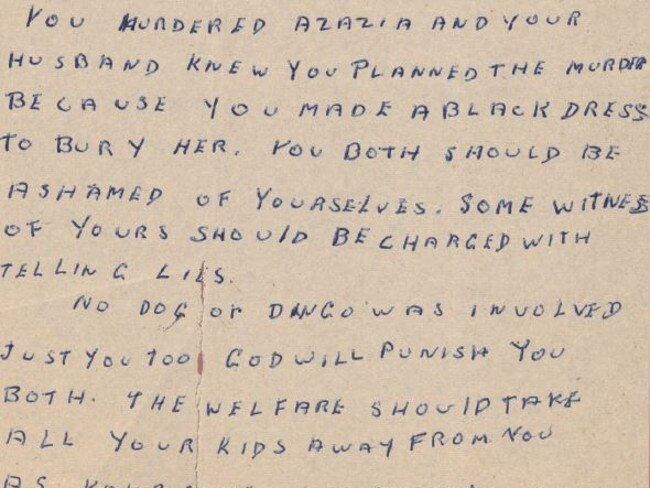 YOU MURDERED AZAZIA AND YOUR
HUSBAND KNEW YOU PLANNED THE MURDER
BECAUSE YOU MADE A BLACK DRESS
TO BURY HER. YOU BOTH SHOULD BE
ASHAMED OF YOURSELVES. SOME WITNESS
OF YOURS SHOULD BE CHARGED WITH
TELLING LIES.
NO DOG or DINGO WAS INVOLVED
JUST YOU TOO GOD WILL PUNISH YOU
BOTH. THE WELFARE SHOULD TAKE
ALL YOUR KIDS AWAY FROM YOU
AS